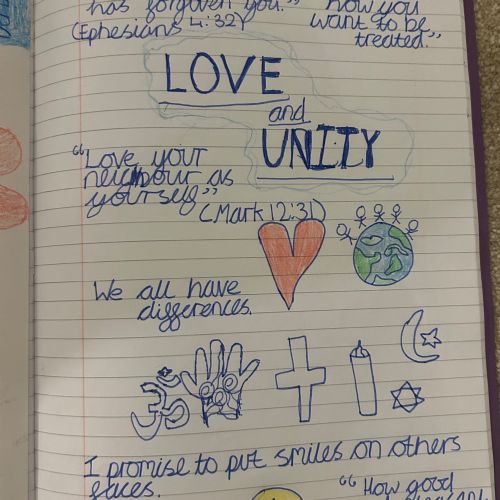 has forgiven you."
(Ephesians 4:32)
how you
want to be
treated."
LOVE
and
UNITY
"Love your
neighbour as
yourself"
(Mark 12:31)
We all have
differences.
I promise to put smiles on others
faces.
"How good